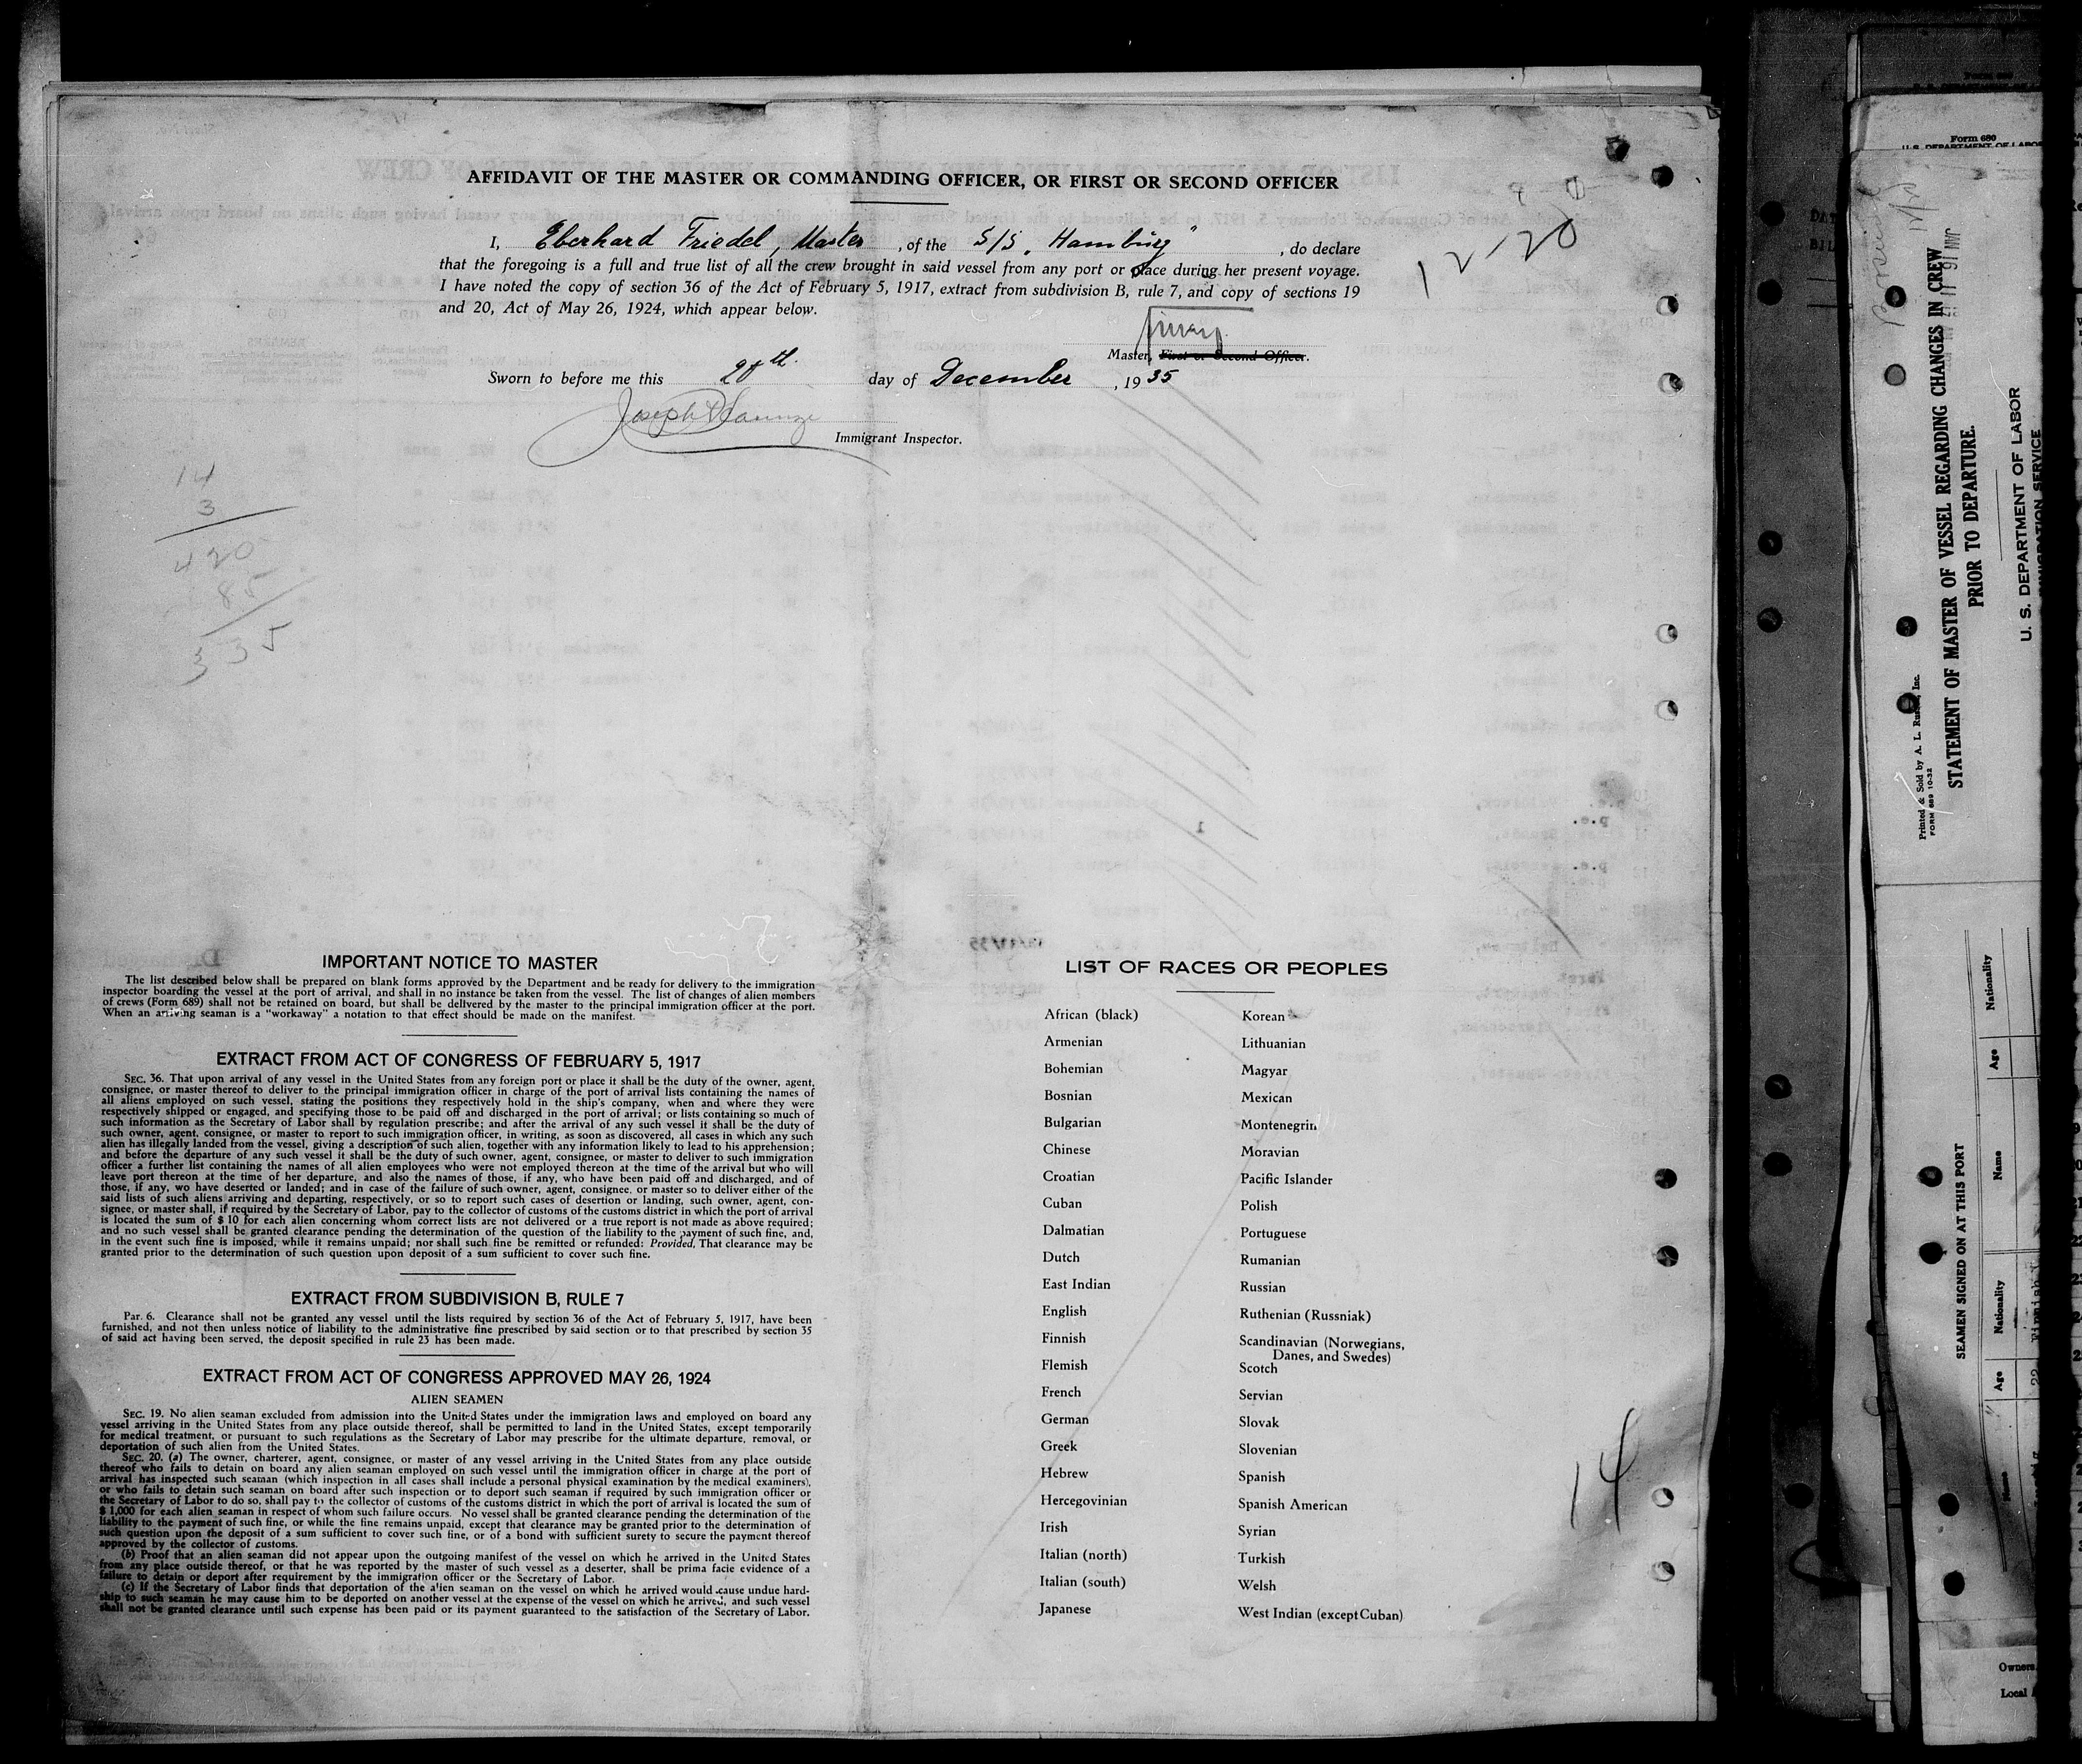 AFFIDAVIT OF THE MASTER OR COMMANDING OFFICER, OR FIRST OR SECOND OFFICER
I, Eberhard Friedel, Master, of the S/S „Hamburg", do declare
that the foregoing is a full and true list of all the crew brought in said vessel from any port or place during her present voyage.
I have noted the copy of section 36 of the Act of February 5, 1917, extract from subdivision B, rule 7, and copy of sections 19
and 20, Act of May 26, 1924, which appear below.
12-20
Master, First or Second Officer.
Sworn to before me this 20th. day of December, 1935
Joseph
Immigrant Inspector.
14
3
420
85
335
IMPORTANT NOTICE TO MASTER
The list described below shall be prepared on blank forms approved by the Department and be ready for delivery to the immigration
inspector boarding the vessel at the port of arrival, and shall in no instance be taken from the vessel. The list of changes of alien members
of crews (Form 689) shall not be retained on board, but shall be delivered by the master to the principal immigration officer at the port.
When an arriving seaman is a "workaway" a notation to that effect should be made on the manifest.
EXTRACT FROM ACT OF CONGRESS OF FEBRUARY 5, 1917
SEC. 36. That upon arrival of any vessel in the United States from any foreign port or place it shall be the duty of the owner, agent,
consignee, or master thereof to deliver to the principal immigration officer in charge of the port of arrival lists containing the names of
all aliens employed on such vessel, stating the positions they respectively hold in the ship's company, when and where they were
respectively shipped or engaged, and specifying those to be paid off and discharged in the port of arrival; or lists containing so much of
such information as the Secretary of Labor shall by regulation prescribe; and after the arrival of any such vessel it shall be the duty of
such owner, agent, consignee, or master to report to such immigration officer, in writing, as soon as discovered, all cases in which any such
alien has illegally landed from the vessel, giving a description of such alien, together with any information likely to lead to his apprehension;
and before the departure of any such vessel it shall be the duty of such owner, agent, consignee, or master to deliver to such immigration
officer a further list containing the names of all alien employees who were not employed thereon at the time of the arrival but who will
leave port thereon at the time of her departure, and also the names of those, if any, who have been paid off and discharged, and of
those, if any, wo have deserted or landed; and in case of the failure of such owner, agent, consignee, or master so to deliver either of the
said lists of such aliens arriving and departing, respectively, or so to report such cases of desertion or landing, such owner, agent, con-
signee, or master shall, if required by the Secretary of Labor, pay to the collector of customs of the customs district in which the port of arrival
is located the sum of $ 10 for each alien concerning whom correct lists are not delivered or a true report is not made as above required;
and no such vessel shall be granted clearance pending the determination of the question of the liability to the payment of such fine, and,
in the event such fine is imposed, while it remains unpaid; nor shall such fine be remitted or refunded: Provided, That clearance may be
granted prior to the determination of such question upon deposit of a sum sufficient to cover such fine.
EXTRACT FROM SUBDIVISION B, RULE 7
Par. 6. Clearance shall not be granted any vessel until the lists required by section 36 of the Act of February 5, 1917, have been
furnished, and not then unless notice of liability to the administrative fine prescribed by said section or to that prescribed by section 35
of said act having been served, the deposit specified in rule 23 has been made.
EXTRACT FROM ACT OF CONGRESS APPROVED MAY 26, 1924
ALIEN SEAMEN
SEC. 19. No alien seaman excluded from admission into the United States under the immigration laws and employed on board any
vessel arriving in the United States from any place outside thereof, shall be permitted to land in the United States, except temporarily
for medical treatment, or pursuant to such regulations as the Secretary of Labor may prescribe for the ultimate departure, removal, or
deportation of such alien from the United States.
SEC. 20. (a) The owner, charterer, agent, consignee, or master of any vessel arriving in the United States from any place outside
thereof who fails to detain on board any alien seaman employed on such vessel until the immigration officer in charge at the port of
arrival has inspected such seaman (which inspection in all cases shall include a personal physical examination by the medical examiners),
or who fails to detain such seaman on board after such inspection or to deport such seaman if required by such immigration officer or
the Secretary of Labor to do so, shall pay to the collector of customs of the customs district in which the port of arrival is located the sum of
$ 1,000 for each alien seaman in respect of whom such failure occurs. No vessel shall be granted clearance pending the determination of the
liability to the payment of such fine, or while the fine remains unpaid, except that clearance may be granted prior to the determination of
such question upon the deposit of a sum sufficient to cover such fine, or of a bond with sufficient surety to secure the payment thereof
approved by the collector of customs.
(b) Proof that an alien seaman did not appear upon the outgoing manifest of the vessel on which he arrived in the United States
from any place outside thereof, or that he was reported by the master of such vessel as a deserter, shall be prima facie evidence of a
failure to detain or deport after requirement by the immigration officer or the Secretary of Labor.
(c) If the Secretary of Labor finds that deportation of the alien seaman on the vessel on which he arrived would cause undue hard-
ship to such seaman he may cause him to be deported on another vessel at the expense of the vessel on which he arrived, and such vessel
shall not be granted clearance until such expense has been paid or its payment guaranteed to the satisfaction of the Secretary of Labor.
LIST OF RACES OR PEOPLES
African (black)
Armenian
Bohemian
Bosnian
Bulgarian
Chinese
Croatian
Cuban
Dalmatian
Dutch
East Indian
English
Finnish
Flemish
French
German
Greek
Hebrew
Hercegovinian
Irish
Italian (north)
Italian (south)
Japanese
Korean
Lithuanian
Magyar
Mexican
Montenegrin
Moravian
Pacific Islander
Polish
Portuguese
Rumanian
Russian
Ruthenian (Russniak)
Scandinavian (Norwegians,
Danes, and Swedes)
Scotch
Servian
Slovak
Slovenian
Spanish
Spanish American
Syrian
Turkish
Welsh
West Indian (except Cuban)
14
Form 680
U. S. DEPARTMENT OF LABOR
Printed & Sold by A. L. Inc.
FORM 689 10-32
STATEMENT OF MASTER OF VESSEL REGARDING CHANGES IN CREW
PRIOR TO DEPARTURE.
U. S. DEPARTMENT OF LABOR
IMMIGRATION SERVICE
SEAMEN SIGNED ON AT THIS PORT
Name
Age
Nationality
Name
Age
Nationality
22
Finnish
Owners
Local